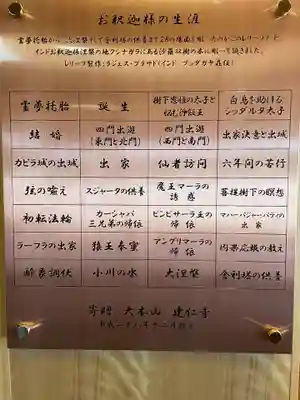 お釈迦様の生涯
霊夢托胎から涅槃そして舎利塔の供養まで28の場面を彫ったのがこのレリーフで
インドお釈迦様涅槃の地クシナガラにある沙羅双樹の木に彫って頂きました。
レリーフ製作(ラジェス・プラサド(インド ブッダガヤ在住)
霊夢托胎
誕生
樹下思惟の太子と
悩む浄飯王
白鳥を助ける
シッダルタ太子
結婚
四門出遊
(東門と北門)
四門出遊
(西門と南門)
出家決意と出城
カピラ城の出城
出家
仙者訪問
六年間の苦行
弦の喩え
スジャータの供養
魔王マーラの
誘惑
菩提樹下の瞑想
初転法輪
カーシャパ
三兄弟の帰依
ビンビサーラ王の
帰依
マハーパジャーパティの
出家
ラーフラの出家
猿王奉蜜
アングリマーラの
帰依
因果応報の教え
酔象調伏
小川の水
大涅槃
舎利塔の供養
寄贈 大本山 建仁寺